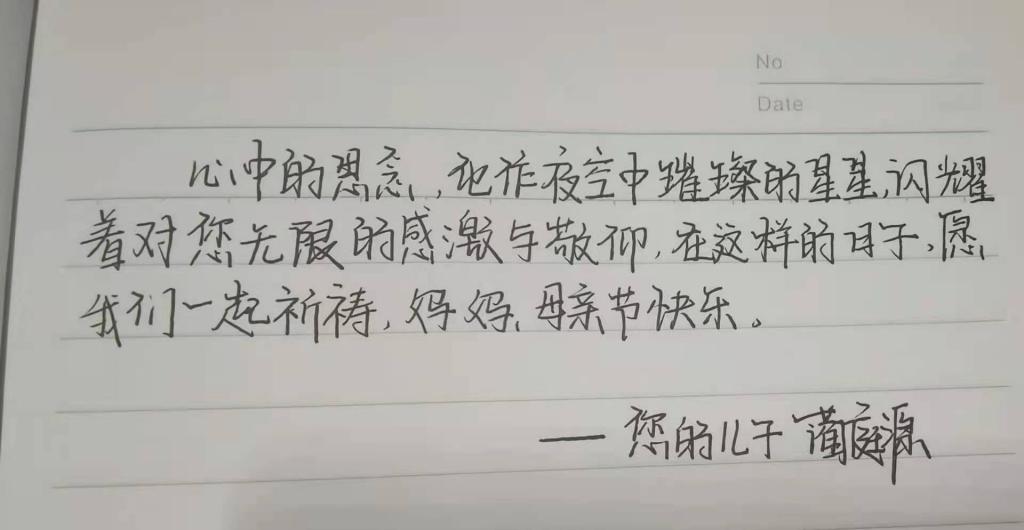 No
Date
心中的思念,化作夜空中璀璨的星星,闪耀
着对您无限的感激与敬仰,在这样的日子,愿
我们一起祈祷,妈妈,母亲节快乐。
——您的儿子 蔺庭源